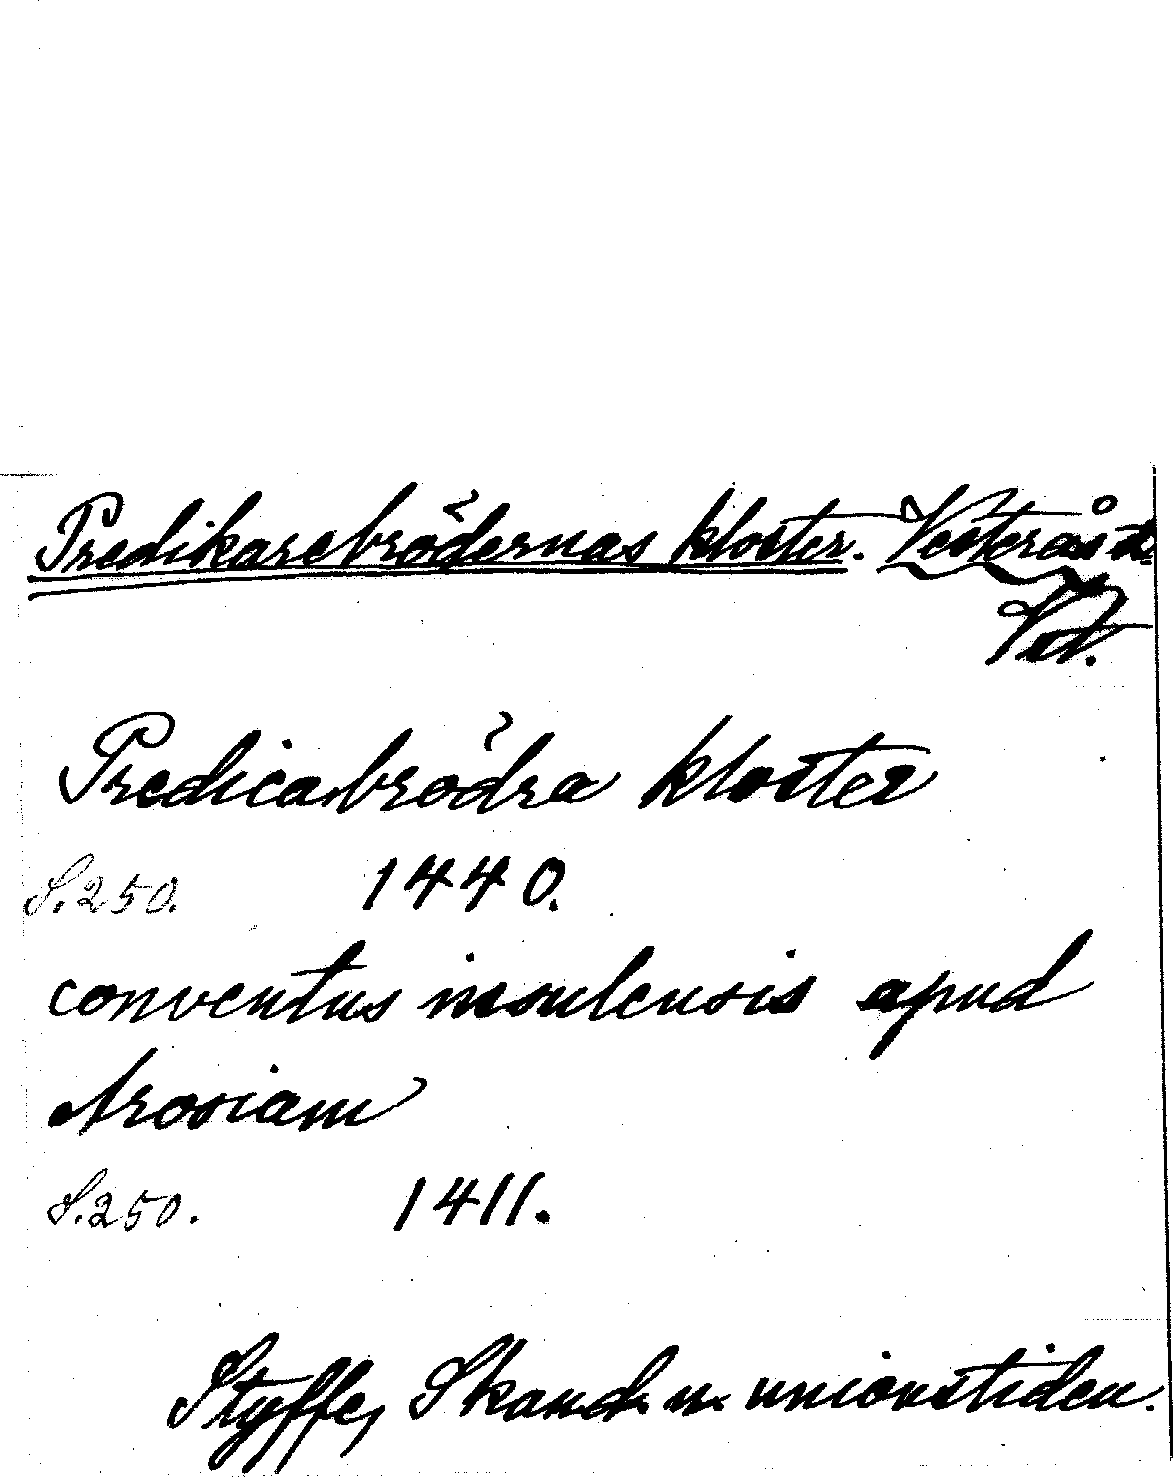 Predikarebrödernas kloster. Vesterås st.
Vstm.
Predicabrödra kloster
S. 250. 1440.
conventus insulensis apud
Arosiam
S. 250. 1411.
Styffe, Skand. u. unionstiden.